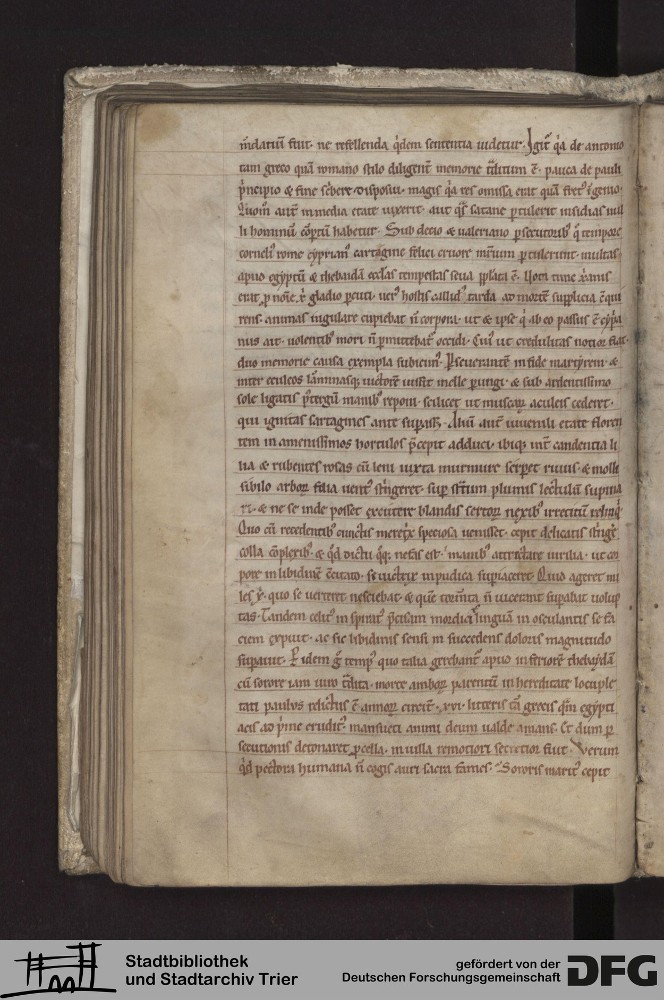 m̄datiū fuit· ne refellenda q̇dem sententia uidetur· Igit᷑ q̇a de antonio
tam greco quā romano stilo diligent᷑ memorie t̾ditum ē· pauca de pauli
ṗncipio & fine sc̾bere disposui· magis q̇a res omissa erat quā fret᷒ īgenio·
Quom̊ aut̄ in media etate uixerit· aut q̄s satane ꝑtulerit insidias nul
li hominū cōꝑtū habetur· Sub decio & ualeriano ꝑsecutorib᷒ q̊ tempore
corneli᷒ rome cyprian᷒ cartagine felici cruore ·multas
apud egyptū & thebaidā eccl̄as tempestas seua ē· Uoti tunc xp̄ianis
erat ꝑ noīe x̄ gladio ꝑcuti· uer᷒ hostis callid᷒ tarda ad mortē supplicia cqui
rens· animas iugulare cupiebat n̄ corpora· ut & ipse q̇ ab eo passus ē cyp̄a
nus ait· uolentib᷒ mori n̄ ꝑmittebat᷑ occidi· Cui᷒ ut crudelitas notior fiat·
duo memorie causa exempla subiecim᷒· ꝑseuerantē in fide martyrem· &
inter eculeos lāminasq; uictorē iussit melle ꝑungi· & sub ardentissimo
sole ligatis p᷒ tergū manib᷒ reponi· scilicet ut muscaꝝ aculeis cederet·
qui ignitas sartagines ante suꝑass&· Aliū aut̄ iuuenili etate floren
tem in amenissimos hortulos p̄cepit adduci· ibiq; int̄ candentia li
lia & rubentes rosas cū leni iuxta murmure serꝑet riuus· & molli
sibilo arboꝝ folia uent᷒ st̾ngeret· suꝑ st̾tum plumis lectulū supina
ri· & ne se inde posset excutere blandis sertoꝝ nexib᷒ irretitū relinq̇·
Quo cū recedentib᷒ cunctis meret̾x speciosa uenisset· cepit delicatis st̾ngere
colla cōplexib᷒· & qd̄ dictu q̊q; nefas est· manib᷒ attrectare uirilia· ut cor
pore in libidinē c̄citato· se uictrix inpudica suꝑiaceret· Quid ageret mi
les x̄· quo se uerteret nesciebat· & quē torm̄ta n̄ uicerant suꝑabat uolup
tas· Tandem celit᷒ inspirat᷒ p̄cisam mordic᷒ linguam in osculantis se fa
ciem expuit· ac sic libidinis sensū succedens doloris magnitudo
suꝑauit· Ꝑ idem g̊ temp᷒ quo talia gerebant᷑ apud inferiorē thebaydā
cū sorore iam uiro t̾dita· morte amboꝝ parentū in hereditate locuple
tati paulus relictus ē annoꝝ circit̄· xvi· litteris tā grecis q̄m egypti
acis ad ṗme erudit᷒· mansueti animi deum ualde amans· Et dum ꝑ
secutionis detonaret ꝓcella· in uilla remotiori secretior fuit· Verum
qd̄ pectora humana n̄ cogis auri sacra fames· Sororis marit᷒ cepit
Stadtbibliothek
und Stadtarchiv Trier
gefördert von der
Deutschen Forschungsgemeinschaft
DFG